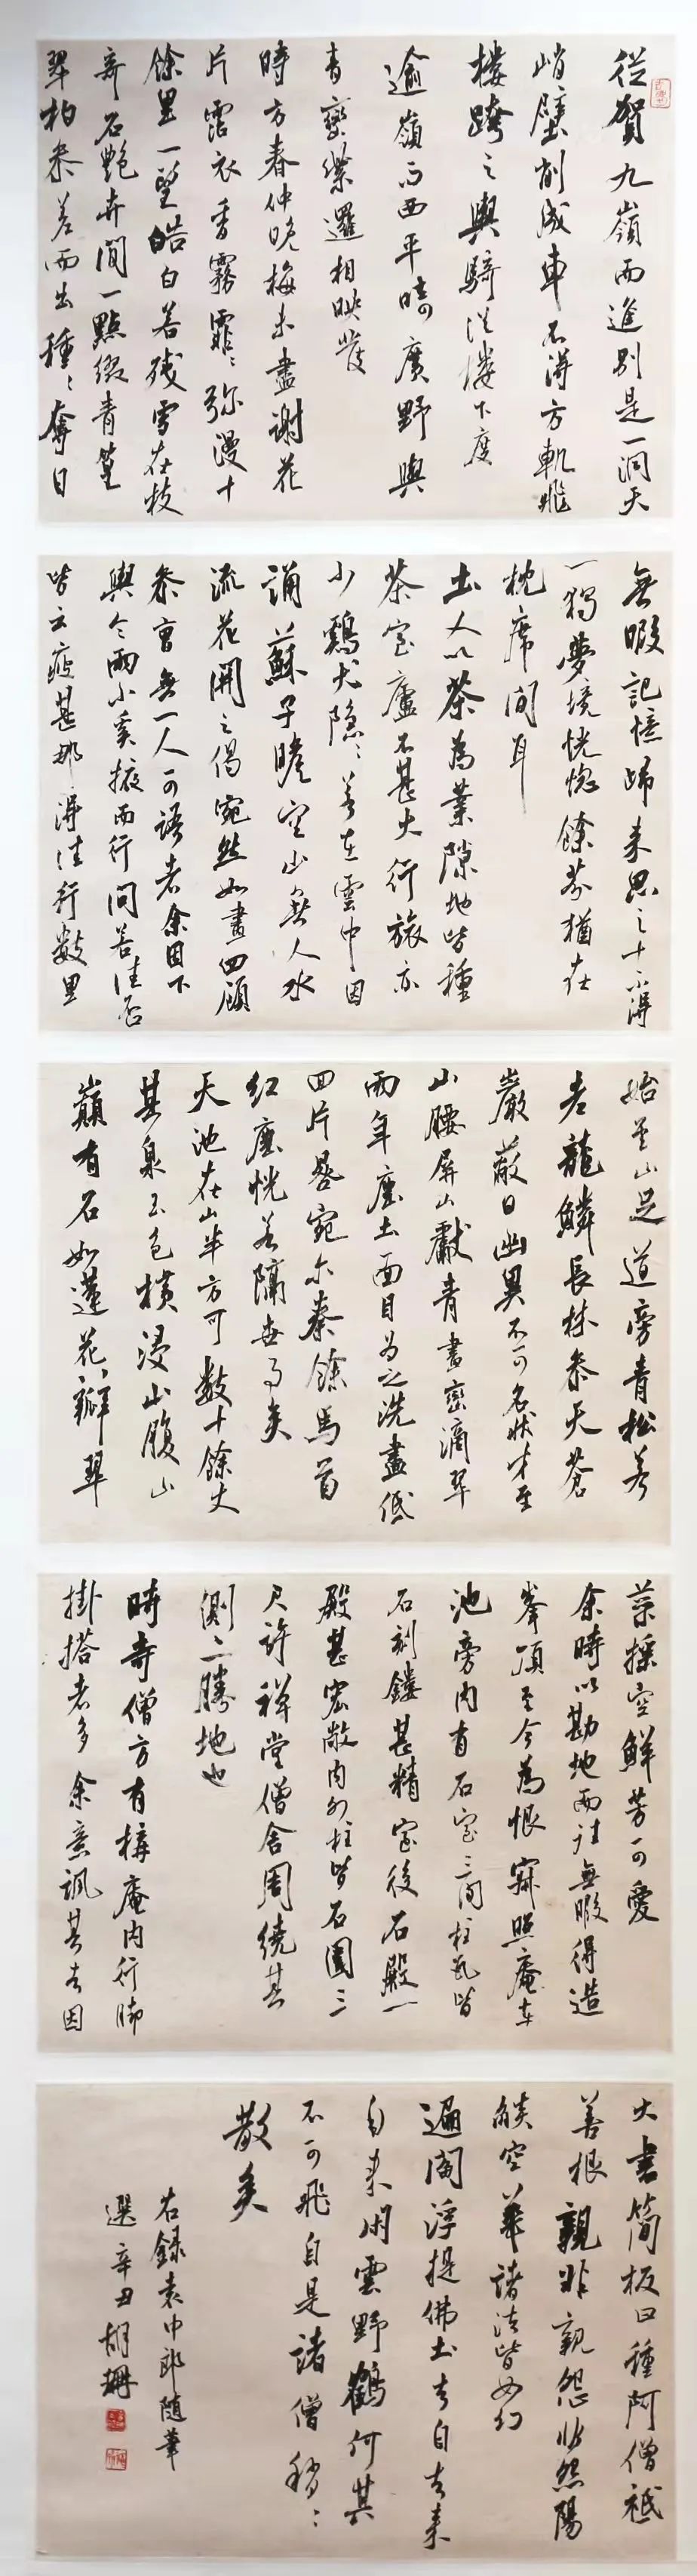 從賀九嶺而進別是一洞天
峭壁削成車不得方軌飛
樓跨之輿騎從樓下度
逾嶺而西平疇廣野與
青巒縈邏相映發
時方春仲晚梅未盡謝花
片霑衣香霧霏〻彌漫十
餘里一望皓白若殘雪在枝
奇石艷卉間一點綴青篁
翠柏參差而出種〻奪目
無暇記憶歸來思之十不得
一獨夢境恍惚餘芬猶在
枕席間耳
土人以茶為業隙地皆種
茶室廬不甚大行旅亦
少鷄犬隱〻若在雲中因
誦蘇子瞻空山無人水
流花開之偈宛然如畫四顧
參曹無一人可語者余因下
輿令兩小奚掖而行問若佳否
皆云疲甚那得佳行數里
始至山足道旁青松若
老龍鱗長林參天蒼
巖蔽日幽異不可名狀才至
山腰屏山獻青畫巒滴翠
兩年塵土面目為之洗盡低
回片晷宛爾秦餘馬首
紅塵恍若隔世事矣
天池在山半方可數十餘丈
其泉玉色横浸山腹山
巔有石如蓮花瓣翠
蕊搖空鮮芳可愛
余時以勘地而往無暇得造
峯頂至今為恨寂照庵在
池旁內有石室三間柱瓦皆
石刻鏤甚精室後石殿一
殿甚宏敞內外柱皆石圍三
尺許禪堂僧舍周繞其
側二勝地也
時寺僧方有構庵內行脚
掛搭者多余意諷其去因
大書簡板曰種阿僧祗
善根親非親怨非怨陽
燄空華諸法皆如幻
遍閻浮提佛土去自去來
自來閑雲野鶴何其
不可飛自是諸僧稍〻
散矣
右録袁中郎隨筆
選辛丑胡珊